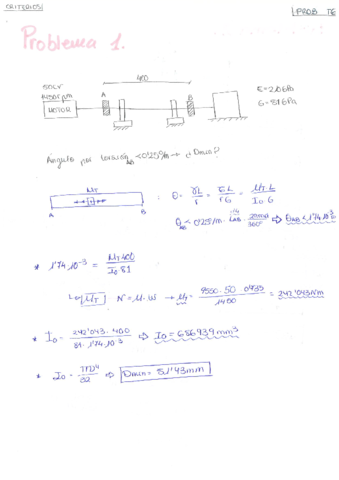 CRITERIOS | PROB TE
Problema 1.
400
50CV
1450rpm
MOTOR
A B
E=210GPa
G=81GPa
Ángulo por torsión AB <0'25º/m → ¿Dmin?
MT
A B
θ = γL/r = ζL/rG = MT·L/I0·G
θAB < 0'25º/m · LAB · 2πrad/360º ⇒ θAB < 1'74·10^-3
* 1'74·10^-3 = MT·400/I0·81
↳ MT N = M·W → MT = 9550·50·0'735/1450 = 242'043Nm
* I0 = 242'043·400/81·1'74·10^-3 ⇒ I0 = 686939mm^4
* I0 = πD^4/32 ⇒ Dmin = 51'43mm